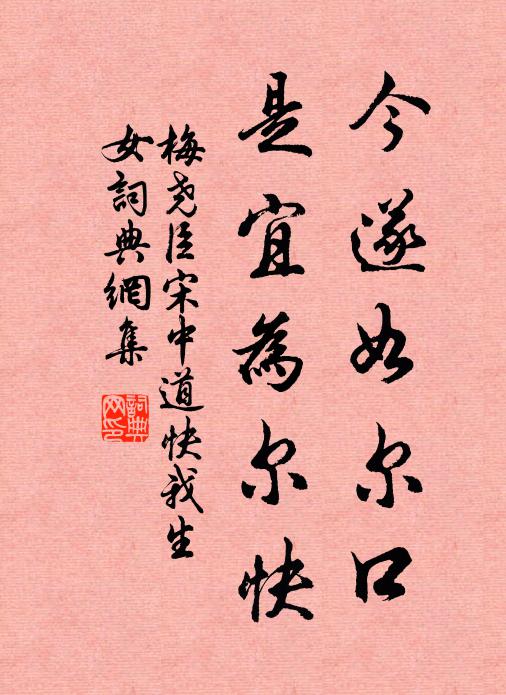 今遂如尔口
是宜為尔快
梅尧臣宋中道快我生
女詞典網集
詞典
网印